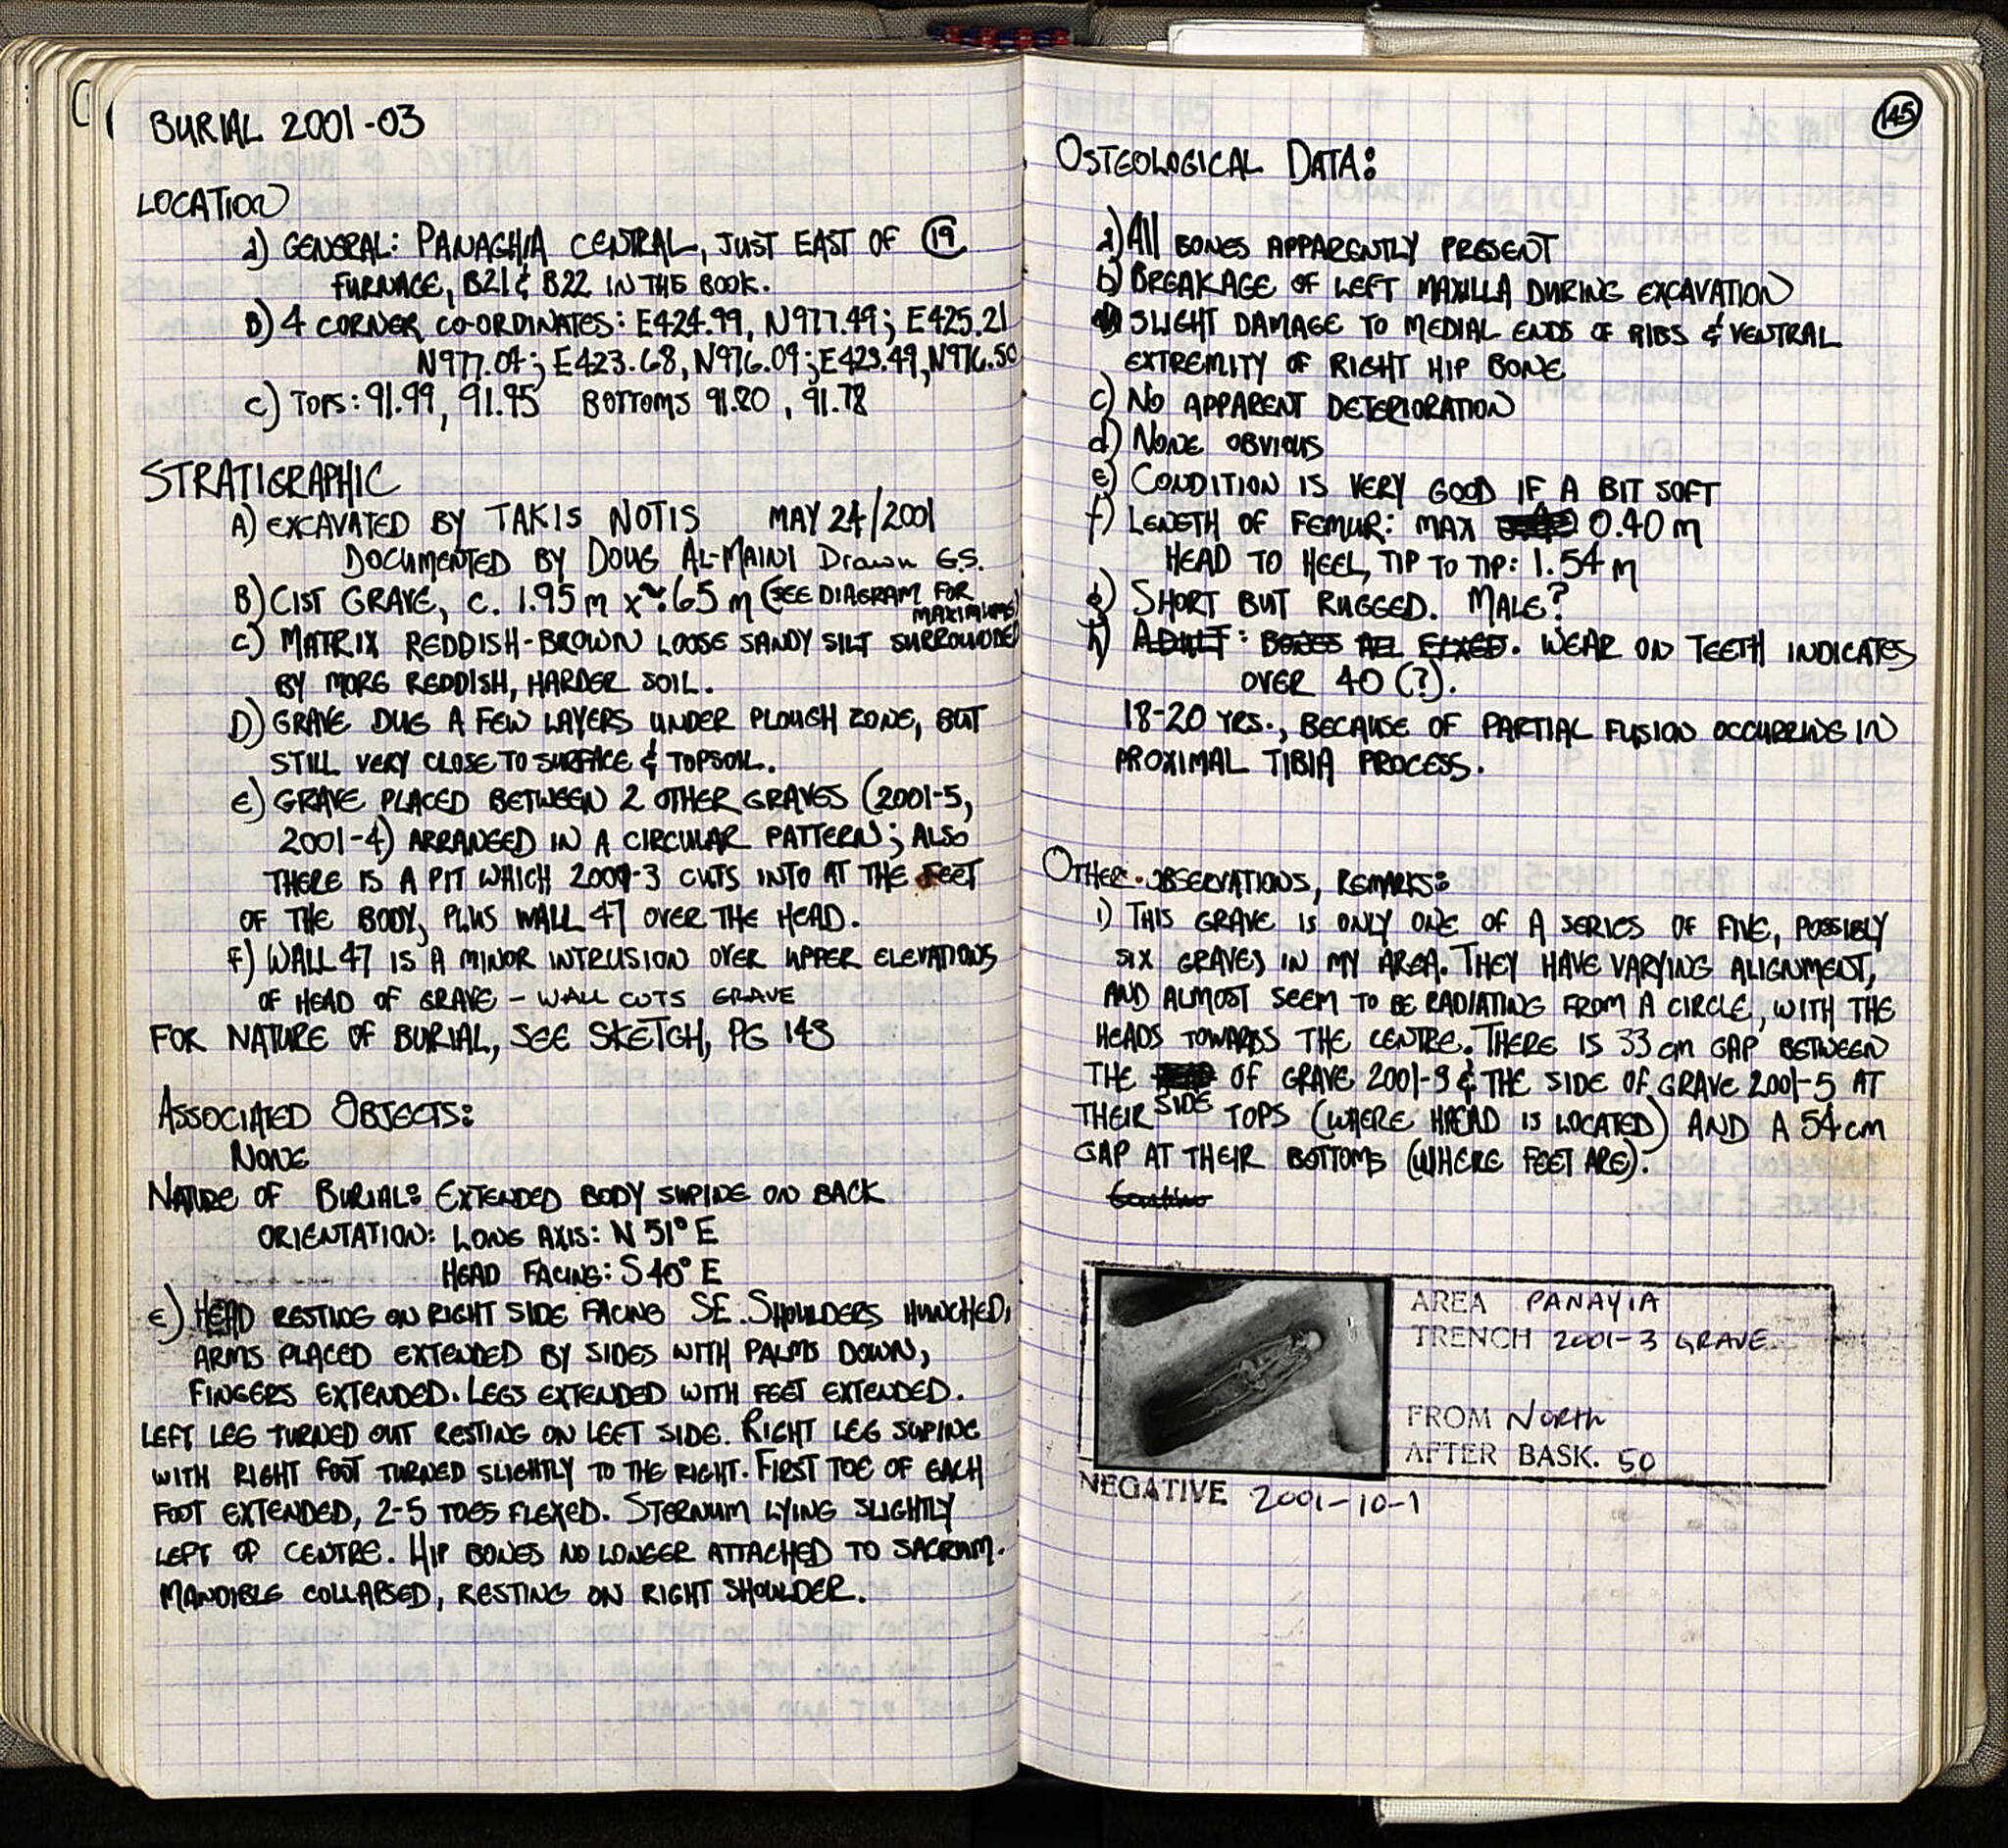 BURIAL 2001-03
LOCATION
a) GENERAL: PANAGHIA CENTRAL, JUST EAST OF 19
FURNACE, B21 & B22 IN THE BOOK.
B) 4 CORNER CO-ORDINATES: E424.99, N977.49; E425.21
N977.07; E423.68, N976.09; E423.49, N976.50
C) TOPS: 91.99, 91.95 BOTTOMS 91.80, 91.78
STRATIGRAPHIC
A) EXCAVATED BY TAKIS NOTIS MAY 24/2001
DOCUMENTED BY DOUG AL-MAINI Drawn G.S.
B) CIST GRAVE, c. 1.95 m x ~.65 m (SEE DIAGRAM FOR
MAXIMUMS)
C) MATRIX REDDISH-BROWN LOOSE SANDY SILT SURROUNDED
BY MORE REDDISH, HARDER SOIL.
D) GRAVE DUG A FEW LAYERS UNDER PLOUGH ZONE, BUT
STILL VERY CLOSE TO SURFACE & TOPSOIL.
E) GRAVE PLACED BETWEEN 2 OTHER GRAVES (2001-5,
2001-4) ARRANGED IN A CIRCULAR PATTERN; ALSO
THERE IS A PIT WHICH 2001-3 CUTS INTO AT THE FEET
OF THE BODY, PLUS WALL 47 OVER THE HEAD.
F) WALL 47 IS A MINOR INTRUSION OVER UPPER ELEVATIONS
OF HEAD OF GRAVE - WALL CUTS GRAVE
FOR NATURE OF BURIAL, SEE SKETCH, PG 143
ASSOCIATED OBJECTS:
NONE
NATURE OF BURIAL: EXTENDED BODY SUPINE ON BACK
ORIENTATION: LONG AXIS: N 51° E
HEAD FACING: S 40° E
E) HEAD RESTING ON RIGHT SIDE FACING SE. SHOULDERS HUNCHED,
ARMS PLACED EXTENDED BY SIDES WITH PALMS DOWN,
FINGERS EXTENDED. LEGS EXTENDED WITH FEET EXTENDED.
LEFT LEG TURNED OUT RESTING ON LEFT SIDE. RIGHT LEG SUPINE
WITH RIGHT FOOT TURNED SLIGHTLY TO THE RIGHT. FIRST TOE OF EACH
FOOT EXTENDED, 2-5 TOES FLEXED. STERNUM LYING SLIGHTLY
LEFT OF CENTRE. HIP BONES NO LONGER ATTACHED TO SACRUM.
MANDIBLE COLLAPSED, RESTING ON RIGHT SHOULDER.
145
OSTEOLOGICAL DATA:
a) All BONES APPARENTLY PRESENT
b) BREAKAGE OF LEFT MAXILLA DURING EXCAVATION
SLIGHT DAMAGE TO MEDIAL ENDS OF RIBS & VENTRAL
EXTREMITY OF RIGHT HIP BONE
c) NO APPARENT DETERIORATION
d) NONE OBVIOUS
e) CONDITION IS VERY GOOD IF A BIT SOFT
f) LENGTH OF FEMUR: MAX 0.40 m
HEAD TO HEEL, TIP TO TIP: 1.54 m
g) SHORT BUT RUGGED. MALE?
h) ADULT: BONES ALL FIXED. WEAR ON TEETH INDICATES
OVER 40 (?).
18-20 YRS., BECAUSE OF PARTIAL FUSION OCCURRING IN
PROXIMAL TIBIA PROCESS.
OTHER OBSERVATIONS, REMARKS:
1) THIS GRAVE IS ONLY ONE OF A SERIES OF FIVE, POSSIBLY
SIX GRAVES IN MY AREA. THEY HAVE VARYING ALIGNMENT,
AND ALMOST SEEM TO BE RADIATING FROM A CIRCLE, WITH THE
HEADS TOWARDS THE CENTRE. THERE IS 33 cm GAP BETWEEN
THE OF GRAVE 2001-3 & THE SIDE OF GRAVE 2001-5 AT
THEIR SIDE TOPS (WHERE HEAD IS LOCATED) AND A 54 cm
GAP AT THEIR BOTTOMS (WHERE FEET ARE).
AREA PANAYIA
TRENCH 2001-3 GRAVE
FROM North
AFTER BASK. 50
NEGATIVE 2001-10-1